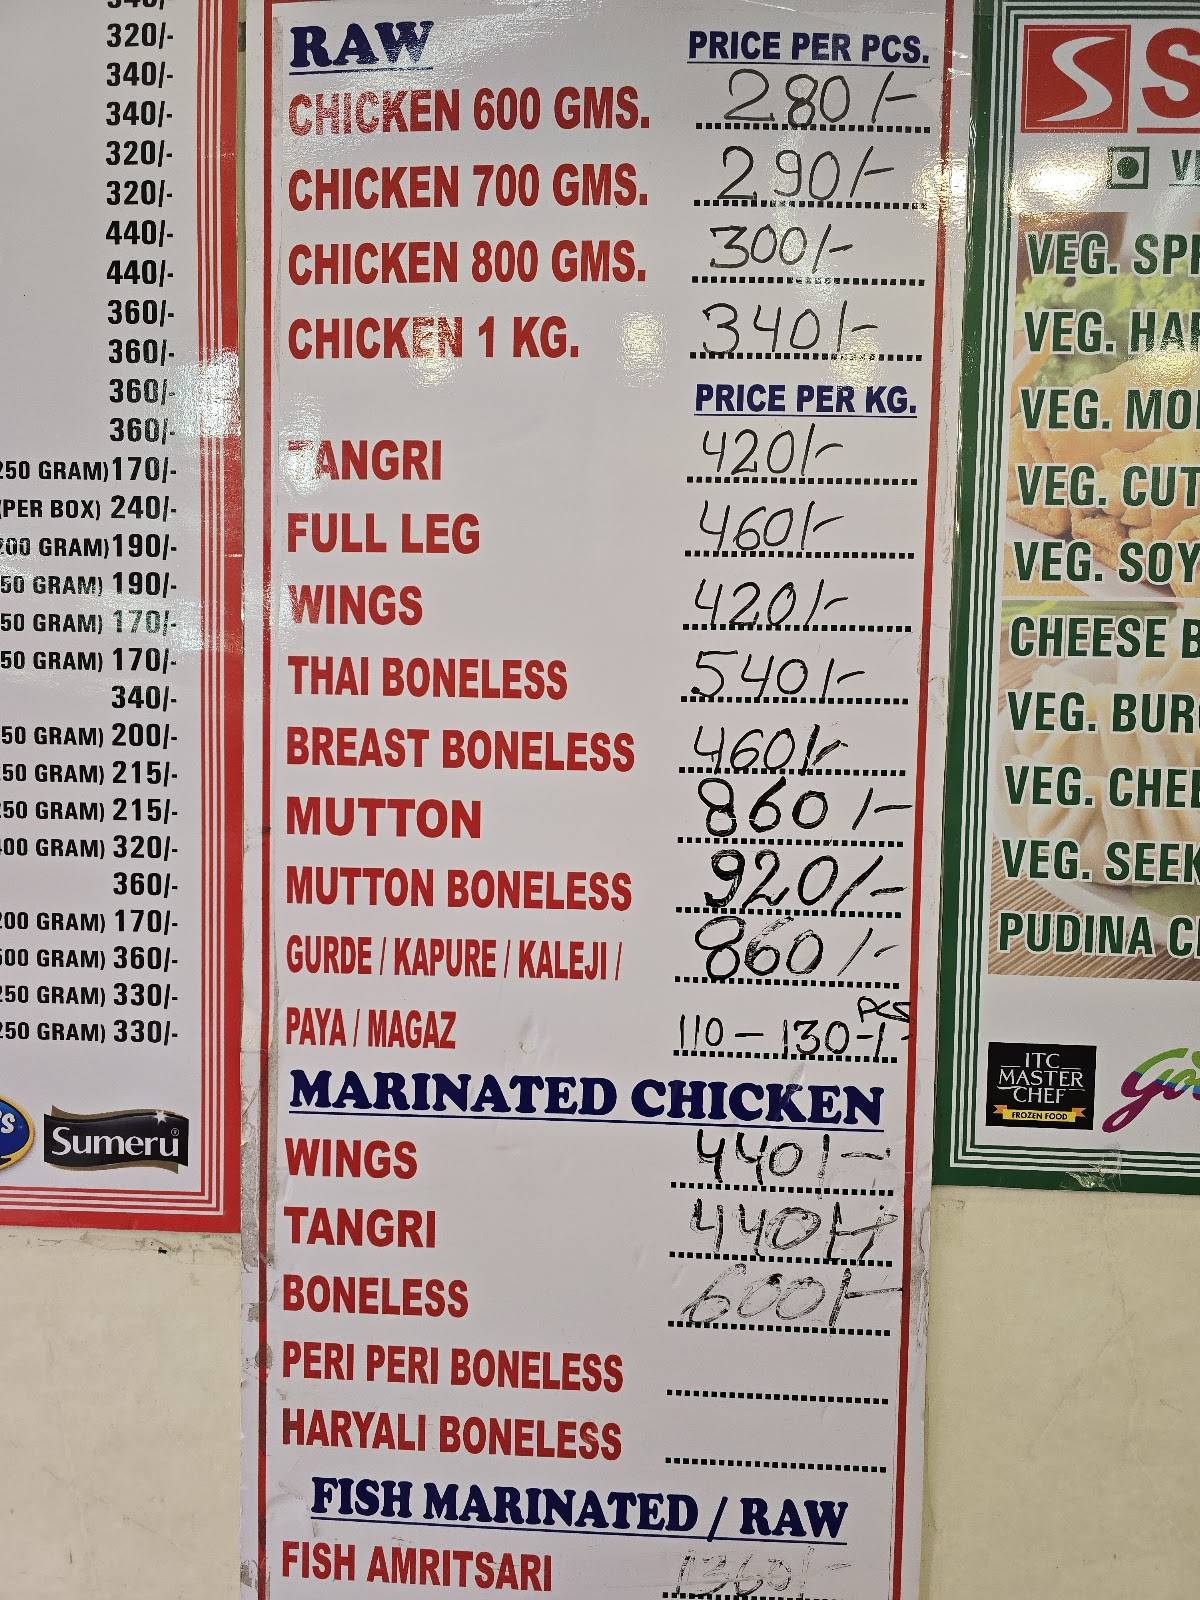 320/-
340/-
340/-
320/-
320/-
440/-
440/-
360/-
360/-
360/-
360/-
250 GRAM) 170/-
(PER BOX) 240/-
GRAM) 190/-
50 GRAM) 190/-
50 GRAM) 170/-
50 GRAM) 170/-
340/-
50 GRAM) 200/-
250 GRAM) 215/-
250 GRAM) 215/-
GRAM) 320/-
360/-
200 GRAM) 170/-
500 GRAM) 360/-
250 GRAM) 330/-
250 GRAM) 330/-
Sumeru®
RAW PRICE PER PCS.
CHICKEN 600 GMS. 280/-
CHICKEN 700 GMS. 290/-
CHICKEN 800 GMS. 300/-
CHICKEN 1 KG. 340/-
PRICE PER KG.
TANGRI 420/-
FULL LEG 460/-
WINGS 420/-
THAI BONELESS 540/-
BREAST BONELESS 460/-
MUTTON 860/-
MUTTON BONELESS 920/-
GURDE / KAPURE / KALEJI / 860/-
PAYA / MAGAZ 110 - 130-/- PCS
MARINATED CHICKEN
WINGS 440/-
TANGRI 440/-
BONELESS 600/-
PERI PERI BONELESS
HARYALI BONELESS
FISH MARINATED / RAW
FISH AMRITSARI 1360/-
S
VEG. SPR
VEG. HAR
VEG. MO
VEG. CUT
VEG. SOY
CHEESE B
VEG. BUR
VEG. CHEE
VEG. SEEK
PUDINA C
ITC
MASTER
CHEF
FROZEN FOOD